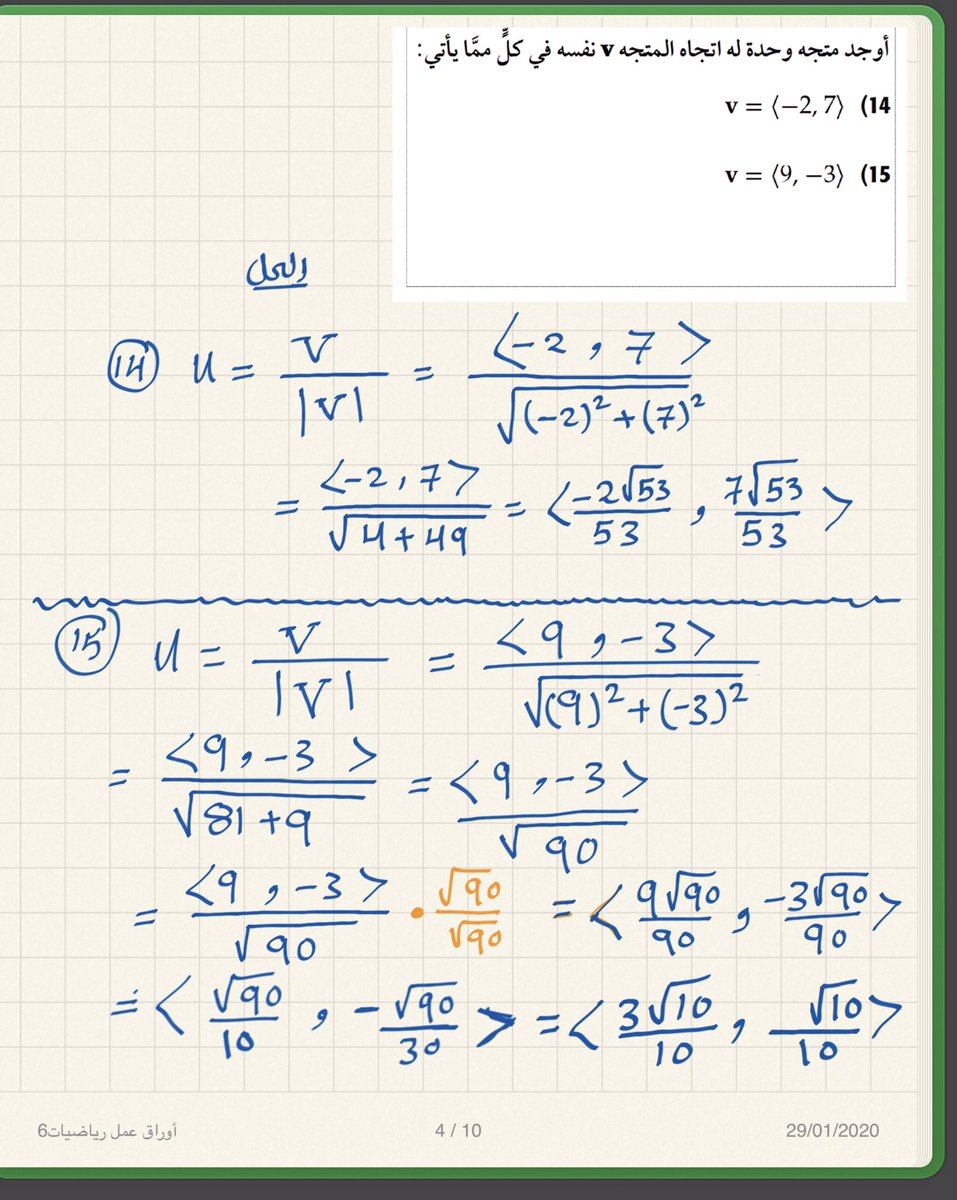 أوجد متجه وحدة له اتجاه المتجه v نفسه في كلٍّ ممَّا يأتي:
v = ⟨−2, 7⟩ (14
v = ⟨9, −3⟩ (15
الحل
14 u = v/|v| = <-2, 7>/√((-2)²+(7)²)
= <-2, 7>/√(4+49) = <-2√53/53, 7√53/53>
15 u = v/|v| = <9, -3>/√((9)²+(-3)²)
= <9, -3>/√(81+9) = <9, -3>/√90
= <9, -3>/√90 · √90/√90 = <9√90/90, -3√90/90>
= <√90/10, -√90/30> = <3√10/10, √10/10>
أوراق عمل رياضيات6
4 / 10
29/01/2020